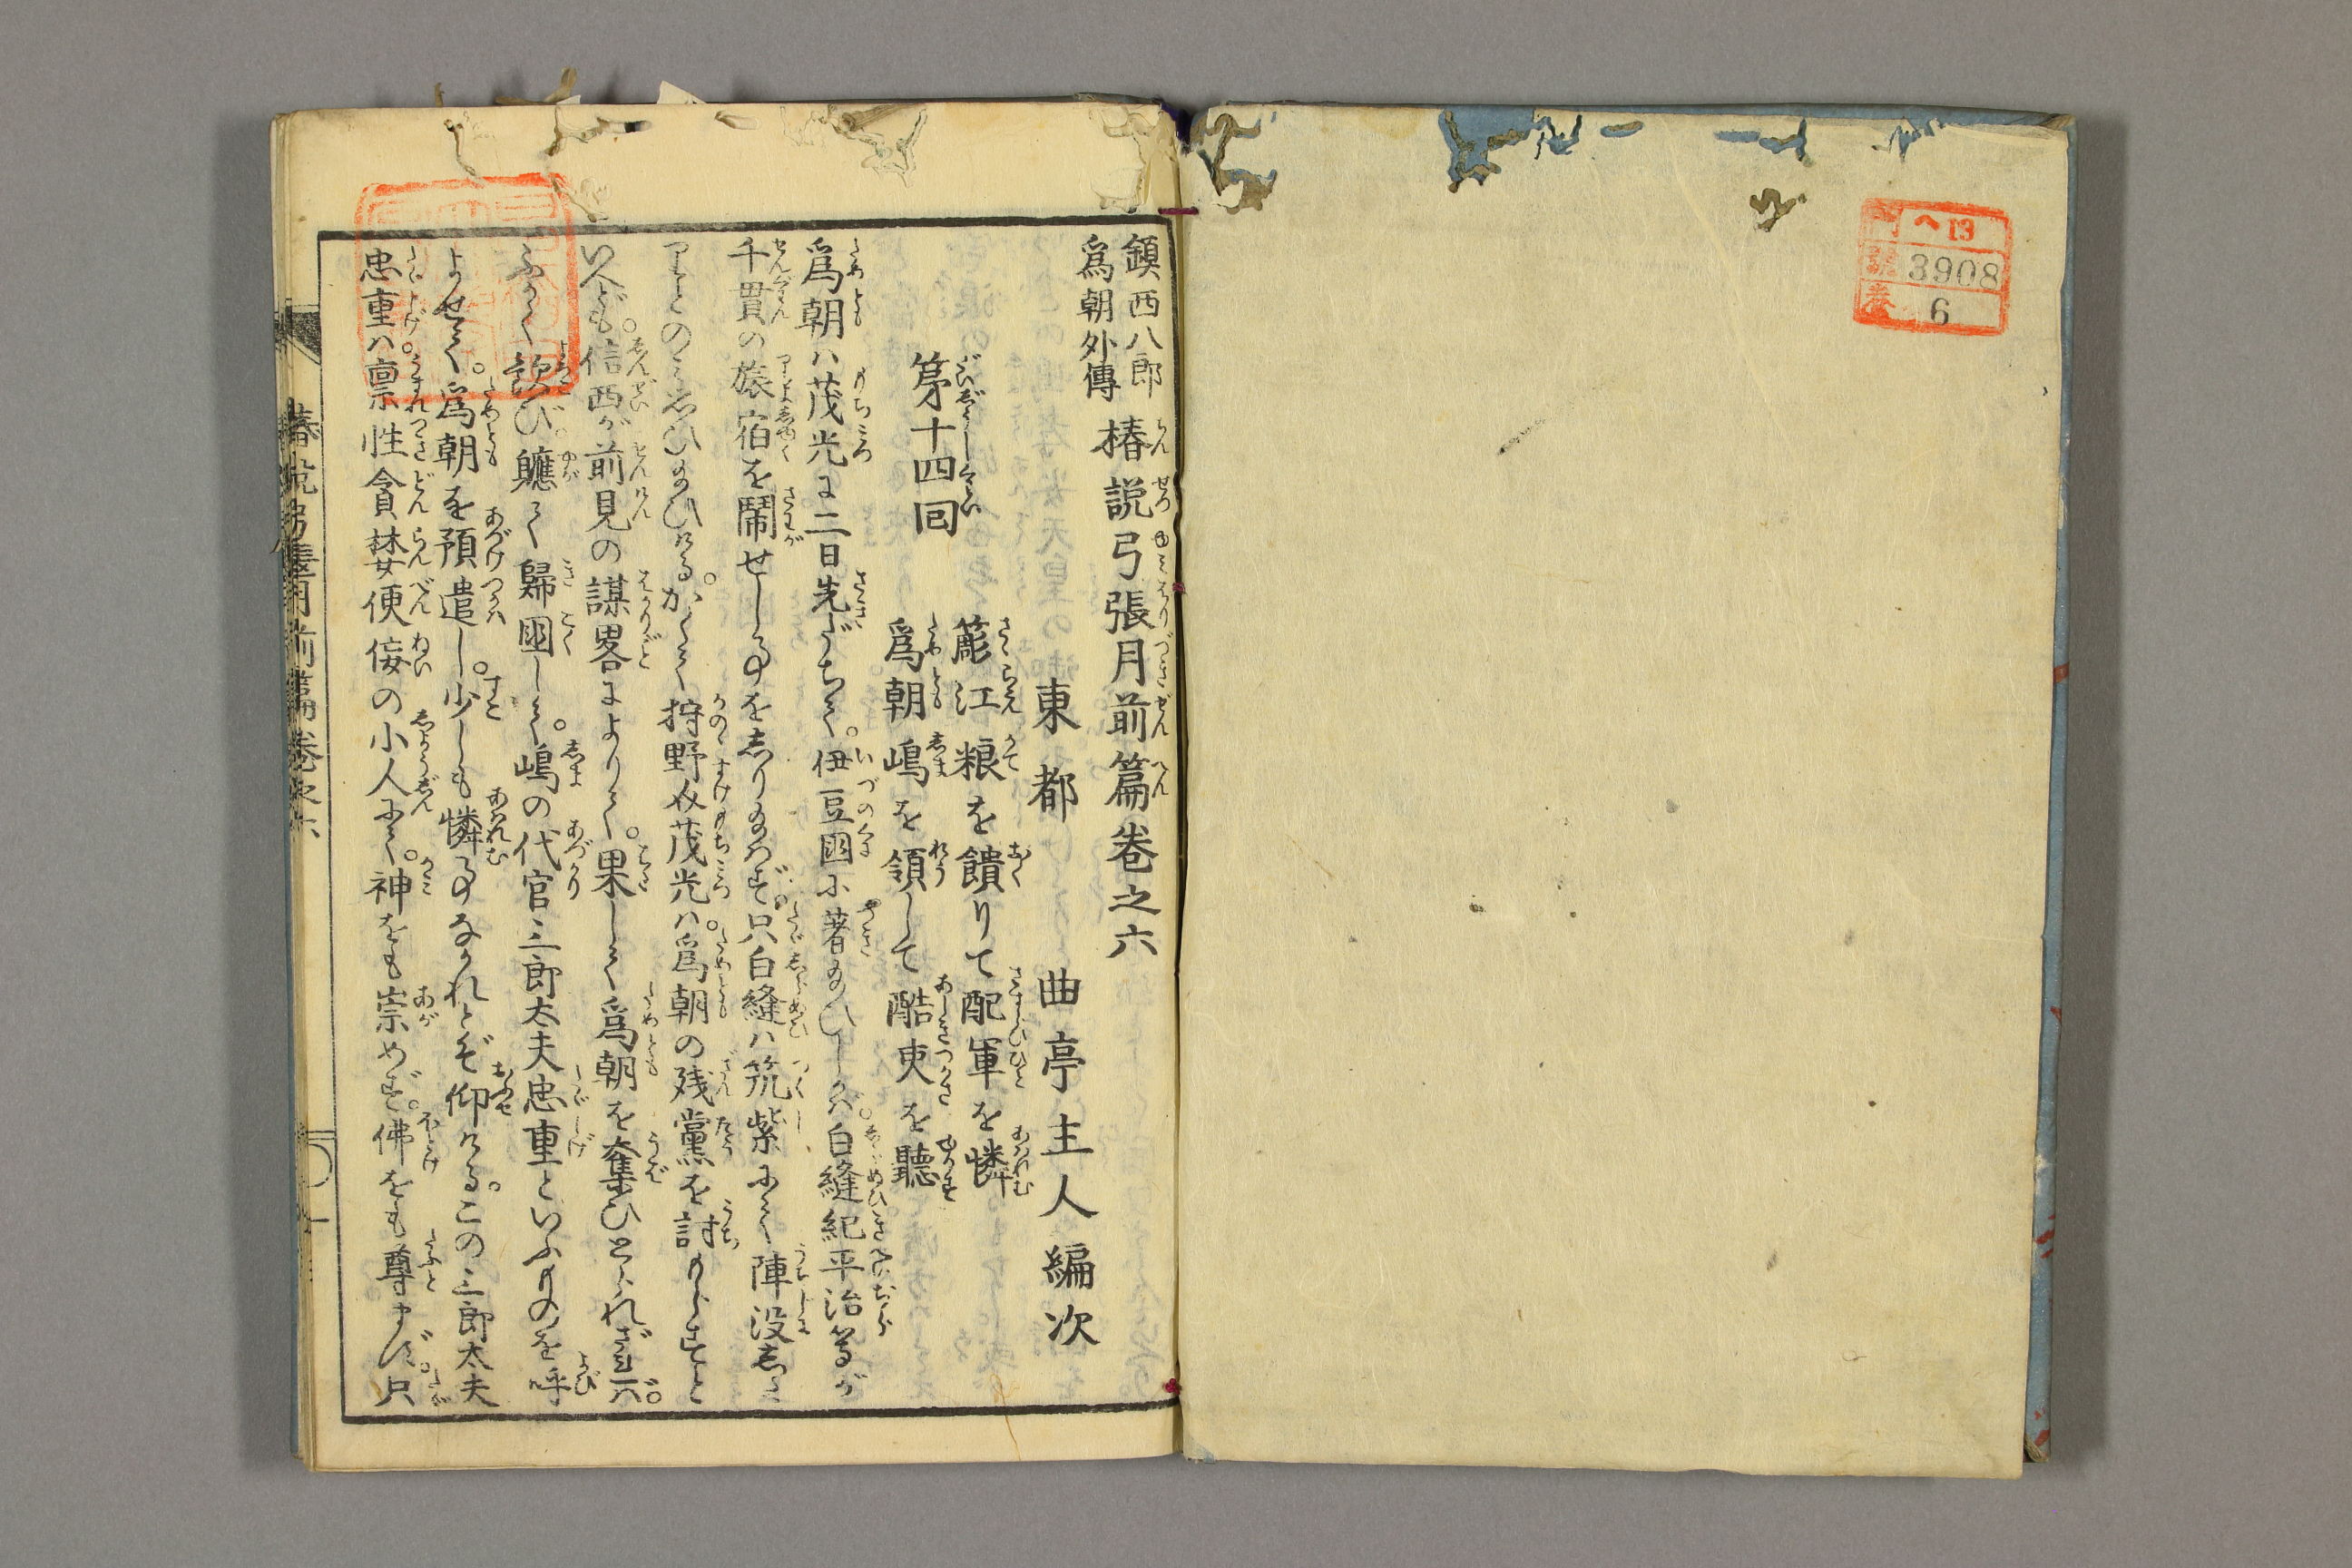 門 ヘ13
號 3908
巻 6
鎮西八郎
爲朝外傳
椿説弓張月前篇巻之六
東都 曲亭主人編次
第十四回
簓江粮を饋りて配軍を憐
爲朝嶋を領して酷吏を聽
爲朝ハ茂光に二日先だちて。伊豆國に著給ひしかバ。白縫紀平治等が
千貫の旅宿を鬧せし事をしり給はず。只白縫ハ筑紫にて陣没し
りとのみ思ひ給ひける。かくて狩野介茂光ハ。爲朝の残黨を討もらすと
いへども。信西が前見の謀畧によりて。果して爲朝を奪ひとられざれバ。
ふかく歓び。軈て歸國して。嶋の代官三郎太夫忠重といふものを呼
よせて。爲朝を預遣し。少しも憐事なかれとぞ仰ける。この三郎太夫
忠重ハ。禀性貪婪便佞の小人にて。神をも崇めず。佛をも尊まず。只
椿説弓張月前篇巻之六